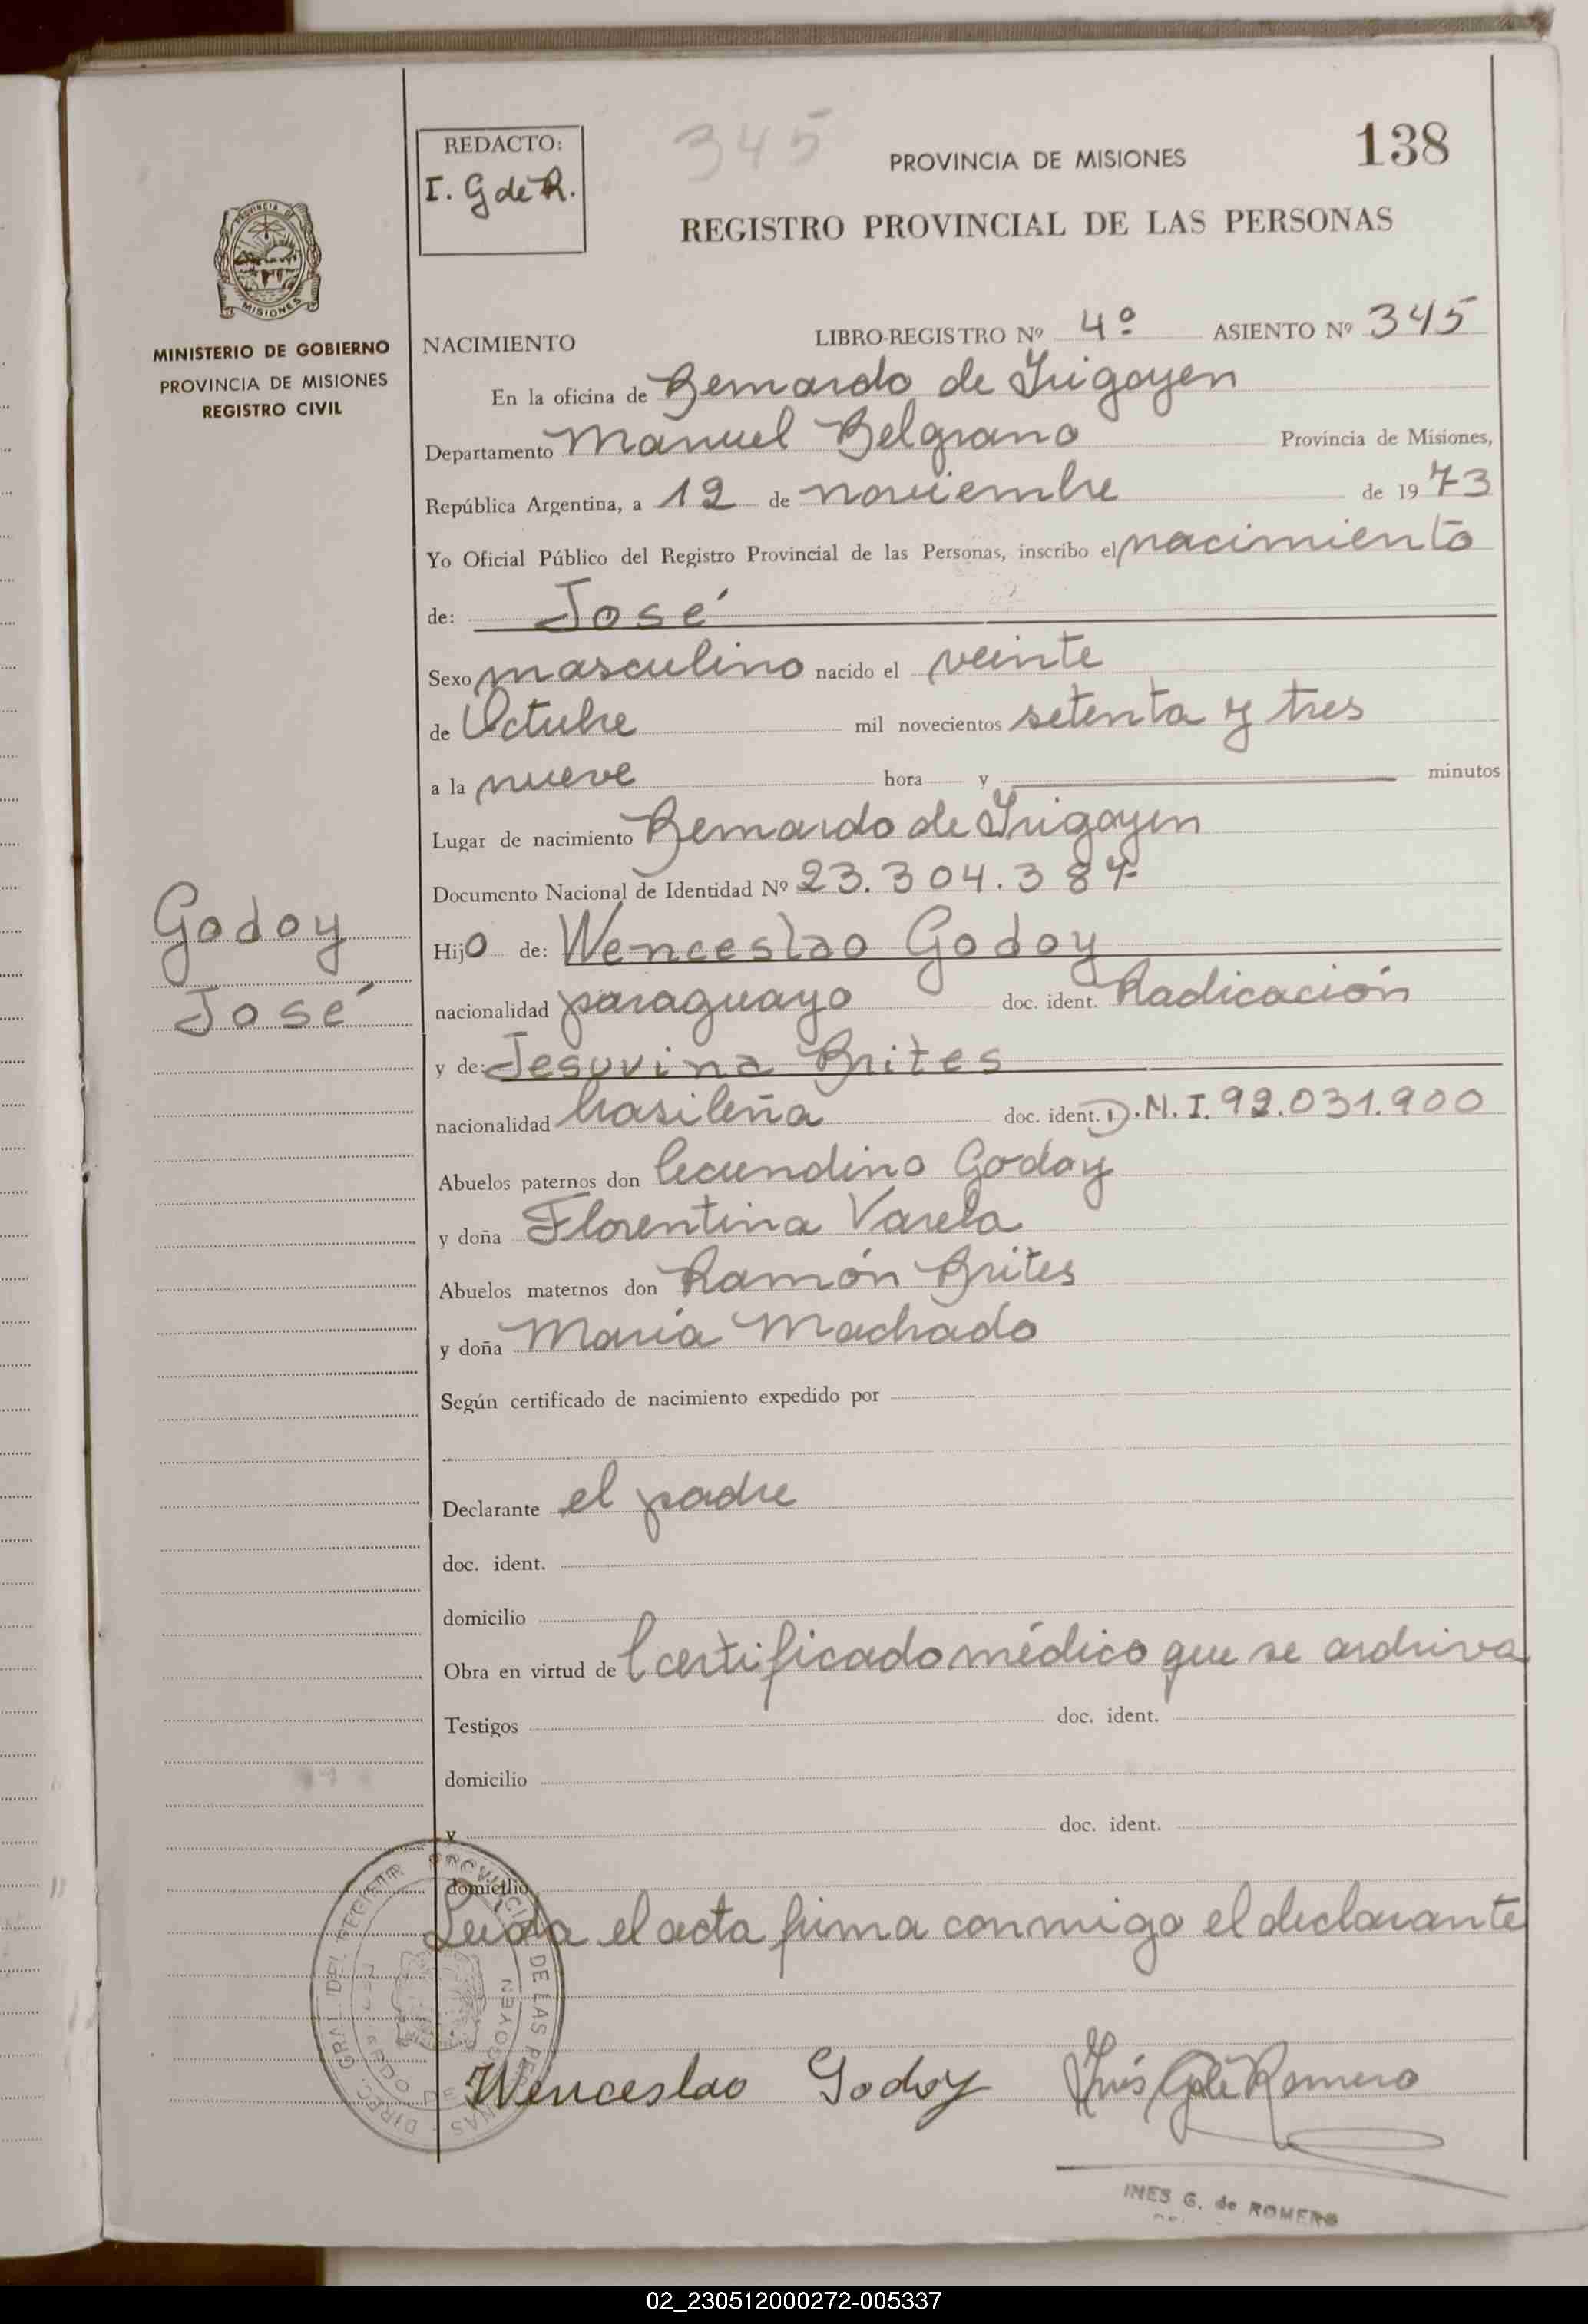 138
REDACTO:
I. G de R.
345
PROVINCIA DE MISIONES
REGISTRO PROVINCIAL DE LAS PERSONAS
PROVINCIA DE
MISIONES
MINISTERIO DE GOBIERNO
PROVINCIA DE MISIONES
REGISTRO CIVIL
NACIMIENTO LIBRO-REGISTRO Nº 4º ASIENTO Nº 345
En la oficina de Bernardo de Irigoyen
Departamento Manuel Belgrano Provincia de Misiones,
República Argentina, a 12 de noviembre de 1973
Yo Oficial Público del Registro Provincial de las Personas, inscribo el nacimiento
de: José
Sexo masculino nacido el veinte
de Octubre mil novecientos setenta y tres
a la nueve hora y minutos
Lugar de nacimiento Bernardo de Irigoyen
Documento Nacional de Identidad Nº 23.304.387
Godoy
José
Hijo de: Wenceslao Godoy
nacionalidad paraguayo doc. ident. Radicación
y de: Jesuvina Brites
nacionalidad brasileña doc. ident. D.N.I. 92.031.900
Abuelos paternos don Secundino Godoy
y doña Florentina Varela
Abuelos maternos don Ramón Brites
y doña María Machado
Según certificado de nacimiento expedido por
Declarante el padre
doc. ident.
domicilio
Obra en virtud del certificado médico que se archiva
Testigos doc. ident.
domicilio
y doc. ident.
domicilio
Leída el acta firma conmigo el declarante
Wenceslao Godoy Inés G de Romero
INES G. de ROMERO
02_230512000272-005337